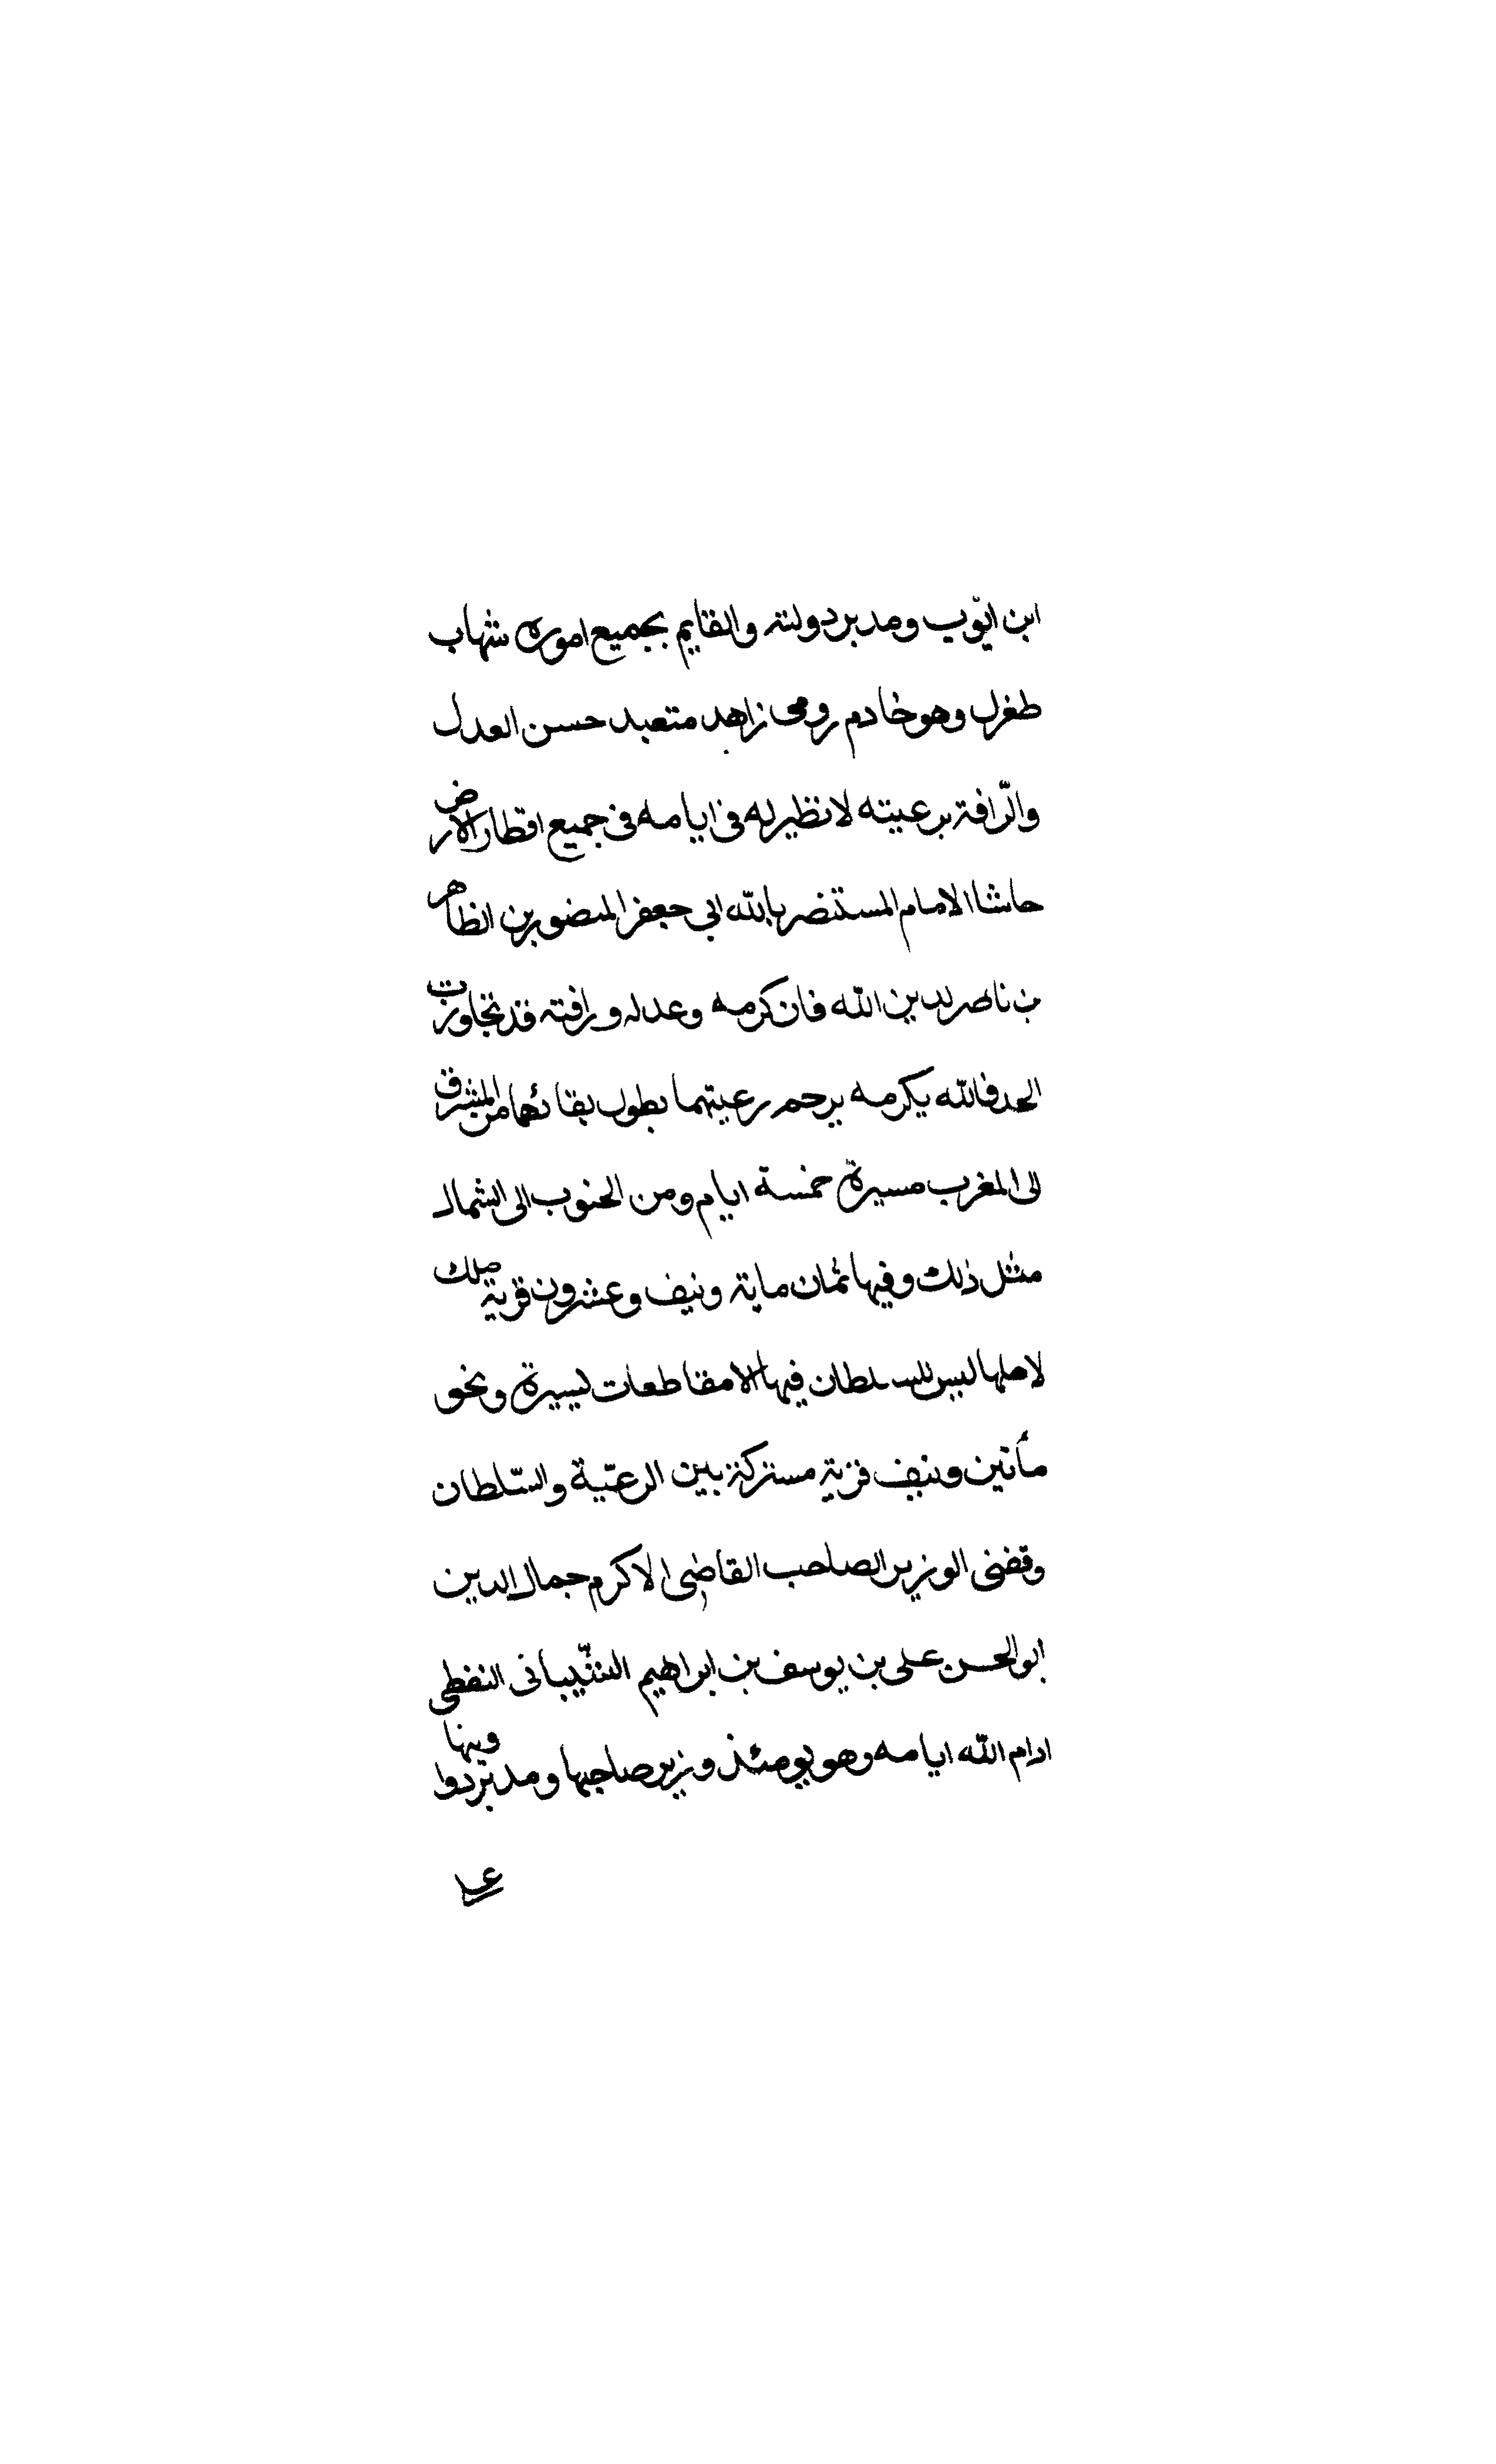 ابن ايّوب ومدبر دولته والقايم بجميع اموره شهاب
طغرل وهو خادم رومى زاهد متعبد حسن العدل
والرّافة برعيته لا نظير له فى ايامه فى جميع اقطار الارض
حاشا الامام المستنصر بالله ابى جعفر المنصور بن الظاهر
بن ناصر لدين الله فان كرمه وعدله ورافته قد تجاوزت
الحد فالله يكرمه يرحم رعيتهما بطول بقائهما من المشرق
الى المغرب مسيرة خمسة ايام ومن الجنوب الى الشمال
مثل ذلك وفيها ثمان ماية ونيف وعشرون قرية ملك
لاهلها ليس للسلطان فيها الا مقاطعات يسيرة ونحو
مأتين ونيف قرية مشتركة بين الرعيّة والسّلطان
وقفنى الوزير الصاحب القاضى الاكرم جمال الدين
ابو الحسن على بن يوسف بن ابراهيم الشّيبانى القفطى
ادام الله ايامه وهو يومئذ وزير صاحبها ومدبر دواوينها